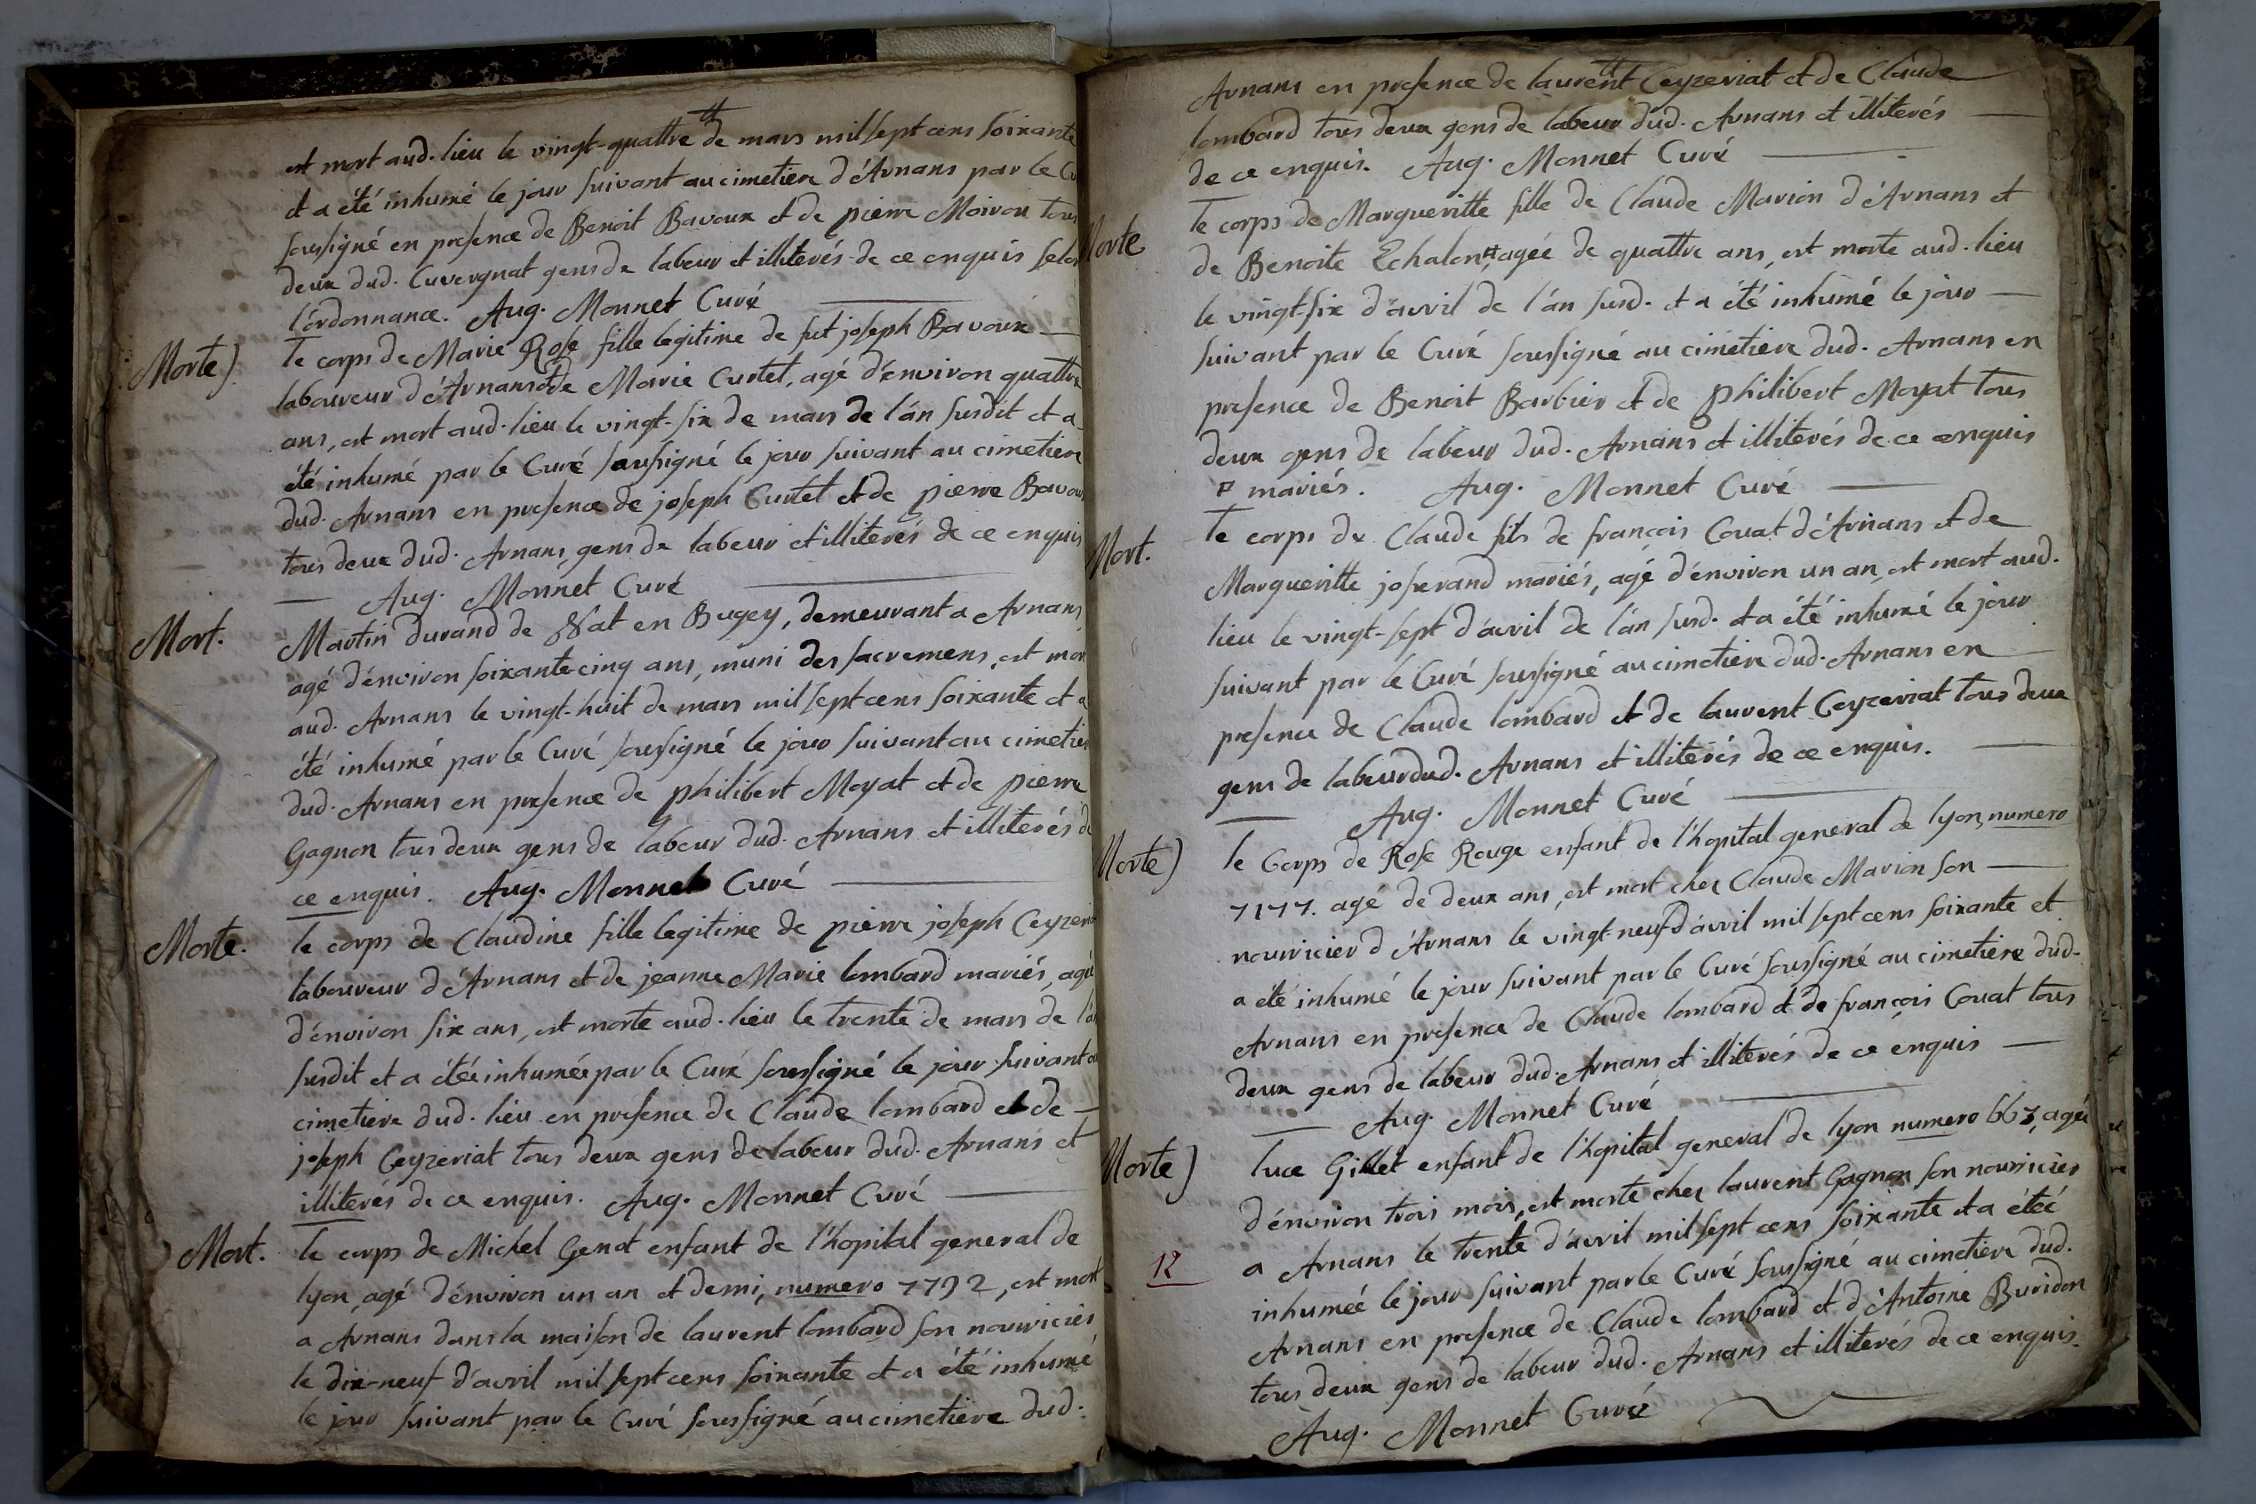 est mort aud. lieu le vingt-quattre de mars mil sept cens soixante
et a été inhumé le jour suivant au cimetiere d'Arnans par le Cu
soussigné en presence de Benoit Bavoux et de pierre Moiron tous
deux dud. Cuvergnat gens de labeur et illiterés de ce enquis selon
l'ordonnance. Aug. Monnet Curé
Morte) Le corps de Marie Rose fille legitime de fut joseph Bavoux
laboureur d'Arnans et de Marie Curtet, agé d'environ quattre
ans, est mort aud. lieu le vingt-six de mars de l'an susdit et a
été inhumé par le Curé soussigné le jour suivant au cimetiere
dud. Arnans en presence de joseph Curtet et de pierre Bavoux
tous deux dud. Arnans, gens de labeur et illiterés de ce enquis
Aug. Monnet Curé
Mort. Martin durand de Nat en Bugey, demeurant a Arnans,
agé d'environ soixante cinq ans, muni des sacremens, est mort
aud. Arnans le vingt-huit de mars mil sept cens soixante et a
été inhumé par le Curé soussigné le jour suivant au cimetiere
dud. Arnans en presence de philibert Moyat et de pierre
Gagnon tous deux gens de labeur dud. Arnans et illiterés de
ce enquis. Aug. Monnet Curé
Morte. le corps de Claudine fille legitime de pierre joseph Ceyzeriat
laboureur d'Arnans et de jeanne Marie lombard mariés, agée
d'environ six ans, est morte aud. lieu le trente de mars de l'an
susdit et a étée inhumée par le Curé soussigné le jour suivant au
cimetiere dud. lieu en presence de Claude lombard et de
joseph Ceyzeriat tous deux gens de labeur dud. Arnans et
illiterés de ce enquis. Aug. Monnet Curé
Mort. le corps de Michel Genot enfant de l'hopital general de
lyon, agé d'environ un an et demi, numero 7792, est mort
a Arnans dans la maison de laurent lombard son nourricier
le dix-neuf d'avril mil sept cens soixante et a été inhumé
le jour suivant par le Curé soussigné au cimetiere dud.
Arnans en presence de laurent Ceyzeriat et de Claude
lombard tous deux gens de labeur dud. Arnans et illiterés
de ce enquis. Aug. Monnet Curé
Morte Le corps de Margueritte fille de Claude Marion d'Arnans et
de Benoite Echalon ¤, agée de quattre ans, est morte aud. lieu
le vingt-six d'avril de l'an susd. et a été inhumé le jour
suivant par le Curé soussigné au cimetiere dud. Arnans en
presence de Benoit Barbier et de philibert Moyat tous
deux gens de labeur dud. Arnans et illiterés de ce enquis
¤ mariés. Aug. Monnet Curé
Mort. Le corps de Claude fils de françois Covat d'Arnans et de
Margueritte joserand mariés, agé d'environ un an, est mort aud.
lieu le vingt-sept d'avril de l'an susd. et a été inhumé le jour
suivant par le Curé soussigné au cimetiere dud. Arnans en
presence de Claude lombard et de laurent Ceyzeriat tous deux
gens de labeur dud. Arnans et illiterés de ce enquis.
Aug. Monnet Curé
Morte) le Corps de Rose Rouge enfant de l'hopital general de lyon, numero
7177. agé de deux ans, est mort chez Claude Marion son
nourricier d'Arnans le vingt neuf d'avril mil sept cens soixante et
a été inhumé le jour suivant par le Curé soussigné au cimetiere dud.
Arnans en presence de Claude lombard et de françois Covat tous
deux gens de labeur dud. Arnans et illiterés de ce enquis
Aug. Monnet Curé
Morte) luce Gillet enfant de l'hopital general de lyon numero 667, agée
d'environ trois mois, est morte chez laurent Gagnon son nourricier
a Arnans le trente d'avril mil sept cens soixante et a étée
12
inhumée le jour suivant par le Curé soussigné au cimetiere dud.
Arnans en presence de Claude lombard et d'Antoine Buridon
tous deux gens de labeur dud. Arnans et illiterés de ce enquis.
Aug. Monnet Curé